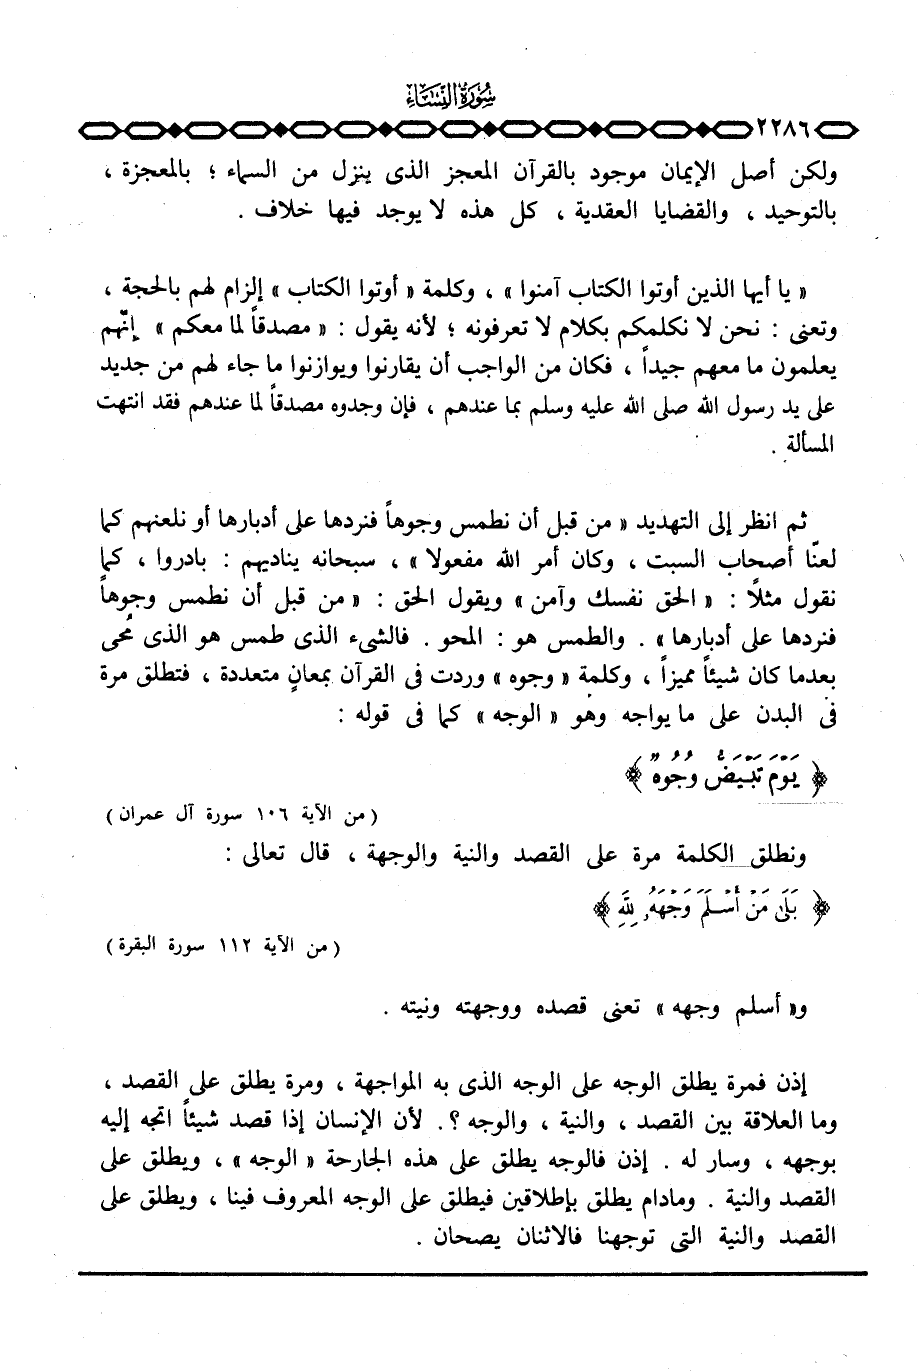 سُورَةُ النِّسَاءِ
٢٢٨٦
ولكن أصل الإيمان موجود بالقرآن المعجز الذى ينزل من السماء ؛ بالمعجزة ،
بالتوحيد ، والقضايا العقدية ، كل هذه لا يوجد فيها خلاف .
« يا أيها الذين أوتوا الكتاب آمنوا » ، وكلمة « أوتوا الكتاب » إلزام لهم بالحجة ،
وتعنى : نحن لا نكلمكم بكلام لا تعرفونه ؛ لأنه يقول : « مصدقاً لما معكم » إنّهم
يعلمون ما معهم جيداً ، فكان من الواجب أن يقارنوا ويوازنوا ما جاء لهم من جديد
على يد رسول الله صلى الله عليه وسلم بما عندهم ، فإن وجدوه مصدقاً لما عندهم فقد انتهت
المسألة .
ثم انظر إلى التهديد « من قبل أن نطمس وجوهاً فنردها على أدبارها أو نلعنهم كما
لعنّا أصحاب السبت ، وكان أمر الله مفعولا » ، سبحانه يناديهم : بادروا ، كما
نقول مثلاً : « الحق نفسك وآمن » ويقول الحق : « من قبل أن نطمس وجوهاً
فنردها على أدبارها » . والطمس هو : المحو . فالشىء الذى طمس هو الذى مُحى
بعدما كان شيئاً مميزاً ، وكلمة « وجوه » وردت فى القرآن بمعانٍ متعددة ، فتطلق مرة
فى البدن على ما يواجه وهو « الوجه » كما فى قوله :
﴿ يَوْمَ تَبْيَضُّ وُجُوهٌ ﴾
( من الآية ١٠٦ سورة آل عمران )
ونطلق الكلمة مرة على القصد والنية والوجهة ، قال تعالى :
﴿ بَلَىٰ مَنْ أَسْلَمَ وَجْهَهُۥ لِلَّهِ ﴾
( من الآية ١١٢ سورة البقرة )
و« أسلم وجهه » تعنى قصده ووجهته ونيته .
إذن فمرة يطلق الوجه على الوجه الذى به المواجهة ، ومرة يطلق على القصد ،
وما العلاقة بين القصد ، والنية ، والوجه ؟. لأن الإنسان إذا قصد شيئاً اتجه إليه
بوجهه ، وسار له . إذن فالوجه يطلق على هذه الجارحة « الوجه » ، ويطلق على
القصد والنية . ومادام يطلق بإطلاقين فيطلق على الوجه المعروف فينا ، ويطلق على
القصد والنية التى توجهنا فالاثنان يصحان .